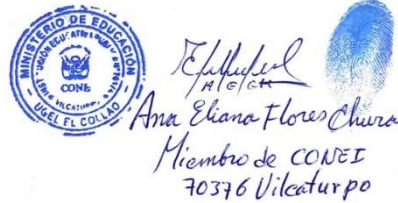 MINISTERIO DE EDUCACIÓN
CONEI
VILCATURPO
UGEL EL COLLAO
Ana Eliana Flores Chura
Miembro de CONEI
70376 Vilcaturpo